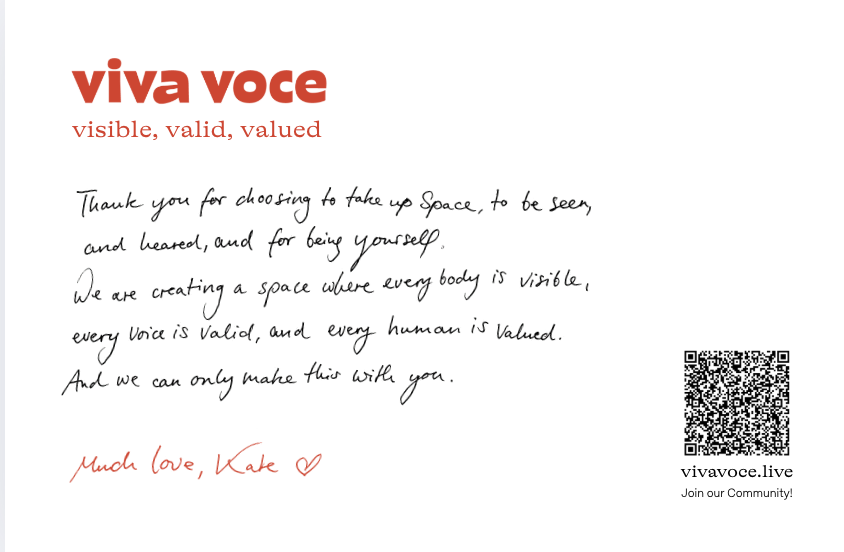 viva voce
visible, valid, valued
Thank you for choosing to take up Space, to be seen,
and heared, and for being yourself.
We are creating a space where every body is visible,
every voice is valid, and every human is valued.
And we can only make this with you.
Much love, Kate ♡
vivavoce.live
Join our Community!